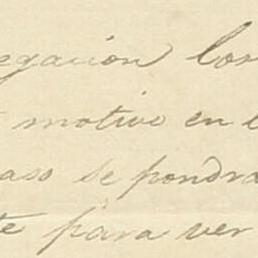 egación Con
motivo en l
aso se pondra
te para ver